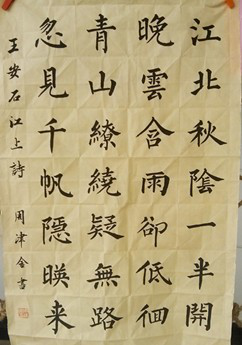 江北秋陰一半開
晚雲含雨卻低徊
青山繚繞疑無路
忽見千帆隱暎来
王安石江上詩 周津合書